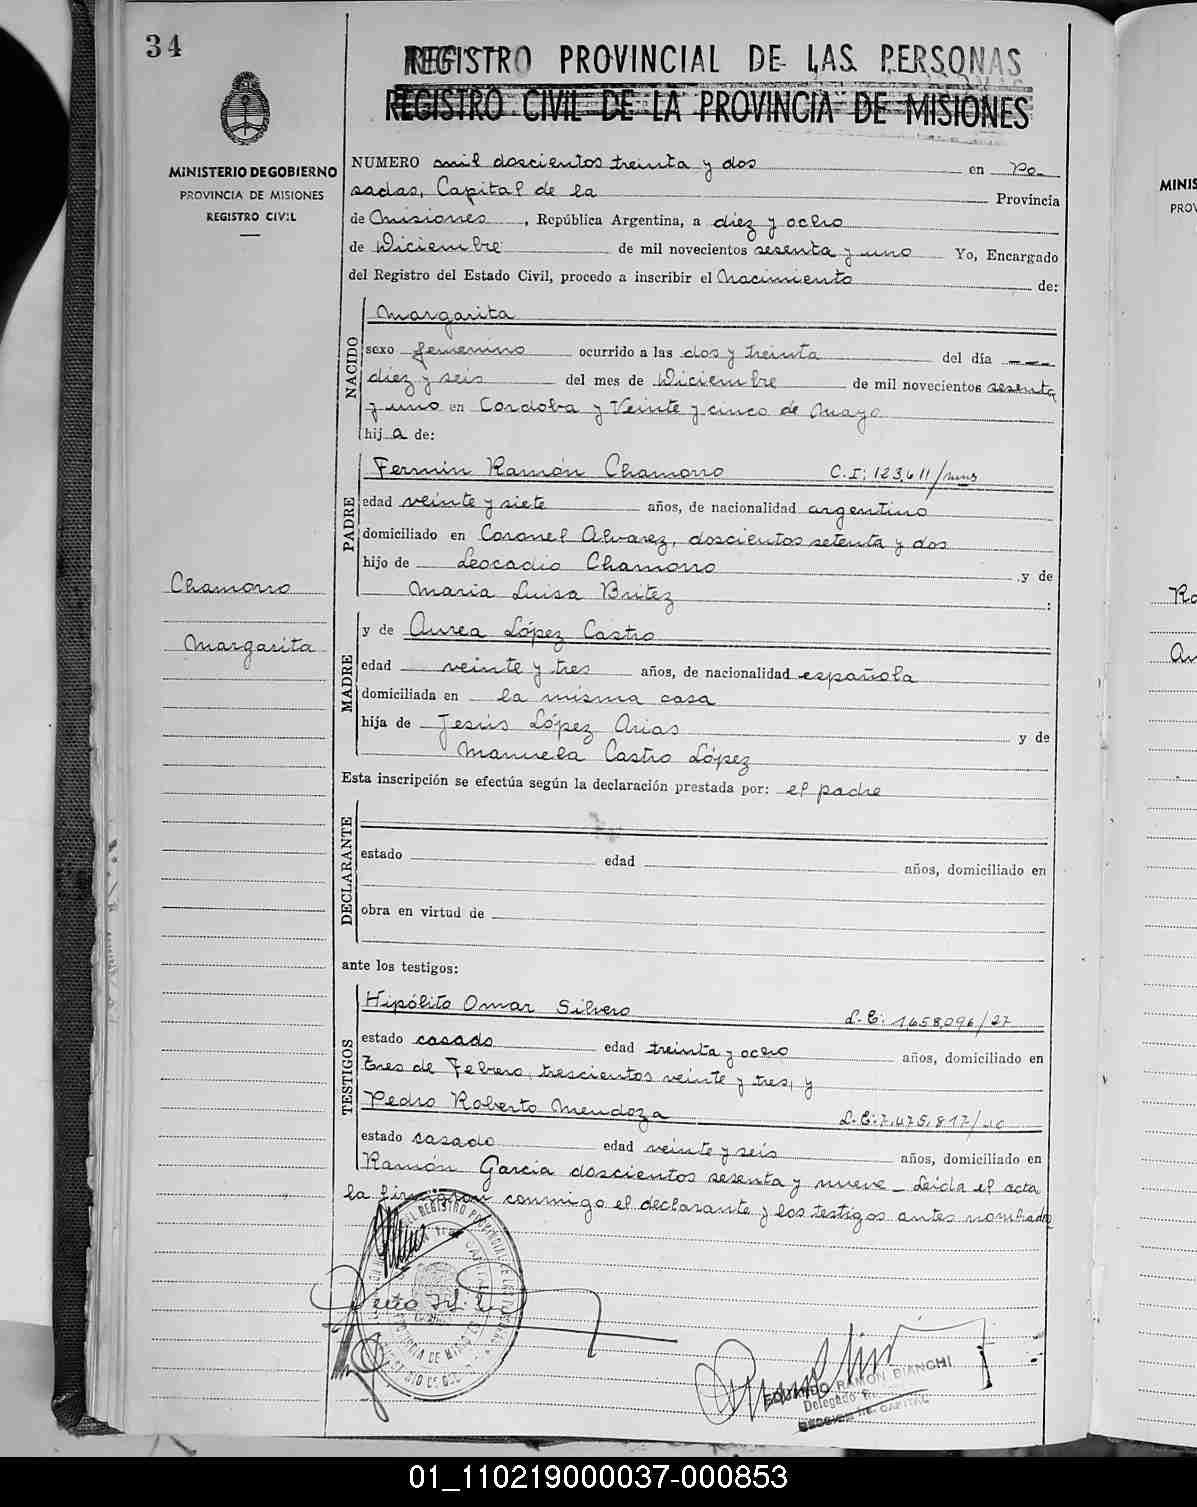 34
REGISTRO PROVINCIAL DE LAS PERSONAS
REGISTRO CIVIL DE LA PROVINCIA DE MISIONES
MINISTERIO DE GOBIERNO
PROVINCIA DE MISIONES
REGISTRO CIVIL
NUMERO mil doscientos treinta y dos en Po-
sadas, Capital de la Provincia
de Misiones, República Argentina, a diez y ocho
de Diciembre de mil novecientos sesenta y uno Yo, Encargado
del Registro del Estado Civil, procedo a inscribir el Nacimiento de:
NACIDO
Margarita
sexo femenino ocurrido a las dos y treinta del día ---
diez y seis del mes de Diciembre de mil novecientos sesenta
y uno en Cordoba y Veinte y cinco de Mayo
hij a de:
PADRE
Fermin Ramón Chamorro C.I: 123,611/mns
edad veinte y siete años, de nacionalidad argentino
domiciliado en Coronel Alvarez, doscientos setenta y dos
hijo de Leocadio Chamorro y de
Maria Luisa Britez :
Chamorro
Margarita
MADRE
y de Aurea López Castro
edad veinte y tres años, de nacionalidad española
domiciliada en la misma casa
hija de Jesús López Arias y de
Manuela Castro López
Esta inscripción se efectúa según la declaración prestada por: el padre
DECLARANTE
estado edad años, domiciliado en
obra en virtud de
ante los testigos:
TESTIGOS
Hipólito Omar Silvero L.E: 1658,096/27
estado casado edad treinta y ocho años, domiciliado en
Tres de Febrero, trescientos veinte y tres, y
Pedro Roberto Mendoza L.E: 7,475,817/
estado casado edad veinte y seis años, domiciliado en
Ramón Garcia doscientos sesenta y nueve - Leida el acta
la firmaron conmigo el declarante y los testigos antes nombrados
RAMON BIANCHI
Delegado
SECCION CAPITAL
MINIS
PRO
01_110219000037-000853